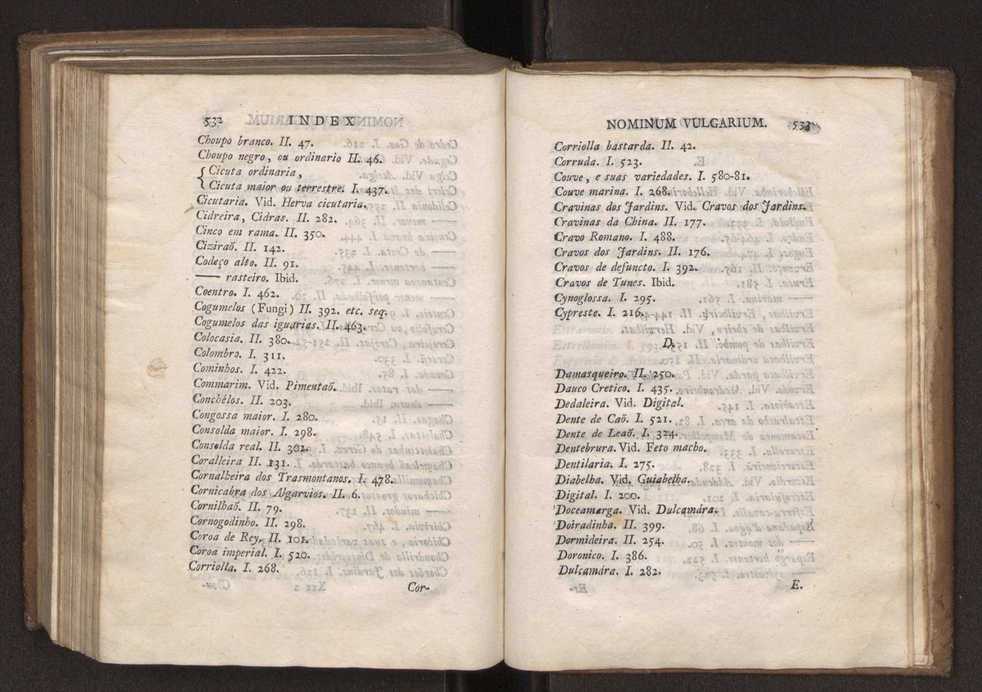 532 INDEX
Choupo branco. II. 47.
Choupo negro, ou ordinario II. 46.
Cicuta ordinaria,
Cicuta maior ou terrestre. I. 437.
Cicutaria. Vid. Herva cicutaria.
Cidreira, Cidras. II. 282.
Cinco em rama. II. 350.
Ciziraõ. II. 142.
Codeço alto. II. 91.
—— rasteiro. Ibid.
Coentro. I. 462.
Cogumelos (Fungi) II. 392. etc. seq.
Cogumelos das iguarias. II. 463.
Colocasia. II. 380.
Colombro. I. 311.
Cominhos. I. 422.
Commarim. Vid. Pimentaõ.
Conchêlos. II. 203.
Congossa maior. I. 280.
Consolda maior. I. 298.
Consolda real. II. 302.
Coralleira II. 131.
Cornalheira dos Trasmontanos. I. 478.
Cornicabra dos Algarvios. II. 6.
Cornilhaõ. II. 79.
Cornogodinho. II. 298.
Coroa de Rey. II. 101.
Coroa imperial. I. 520.
Corriolla. I. 268.
Cor-
NOMINUM VULGARIUM. 533
Corriolla bastarda. II. 42.
Corruda. I. 523.
Couve, e suas variedades. I. 580-81.
Couve marina. I. 268.
Cravinas dos Jardins. Vid. Cravos dos Jardins.
Cravinas da China. II. 177.
Cravo Romano. I. 488.
Cravos dos Jardins. II. 176.
Cravos de defuncto. I. 392.
Cravos de Tunes. Ibid.
Cynoglossa. I. 295.
Cypreste. I. 216.
D.
Damasqueiro. II. 250.
Dauco Cretico. I. 435.
Dedaleira. Vid. Digital.
Dente de Caõ. I. 521.
Dente de Leaõ. I. 324.
Dentebrura. Vid. Feto macho.
Dentilaria. I. 275.
Diabelha. Vid. Guiabelha.
Digital. I. 200.
Doceamarga. Vid. Dulcamára.
Doiradinha. II. 399.
Dormideira. II. 254.
Doronico. I. 386.
Dulcamára. I. 282.
E.